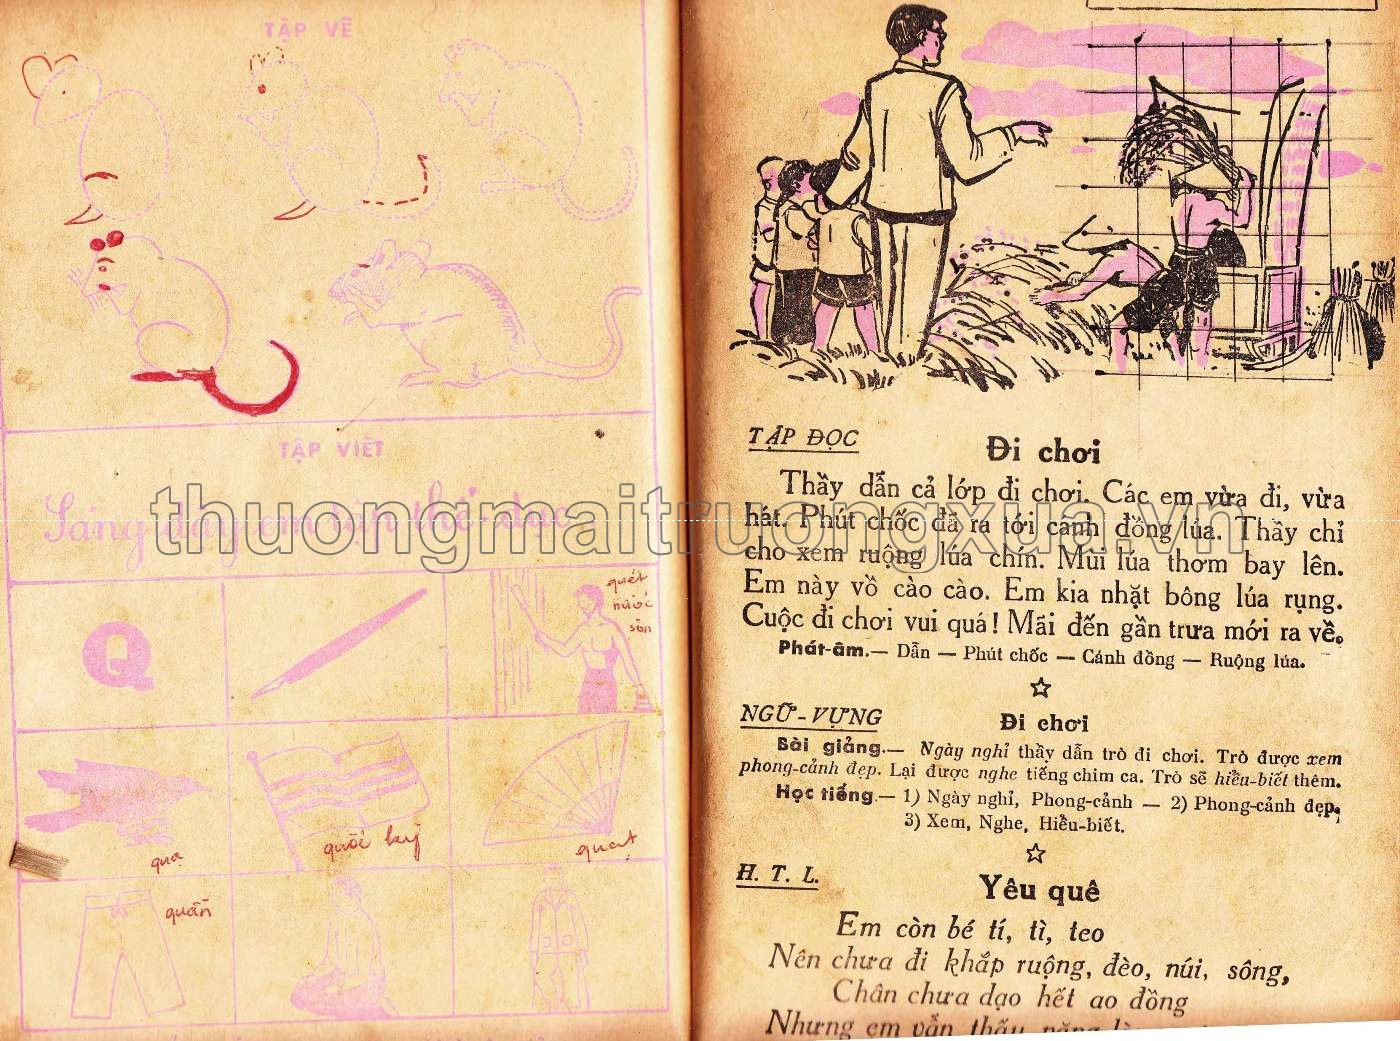 TẬP VẼ
TẬP VIẾT
Sáng dậy em tập thể-dục
Q
quét
nước
sơn
quạ
quốc kỳ
quạt
quần
TẬP ĐỌC
Đi chơi
Thầy dẫn cả lớp đi chơi. Các em vừa đi, vừa
hát. Phút chốc đã ra tới cánh đồng lúa. Thầy chỉ
cho xem ruộng lúa chín. Mùi lúa thơm bay lên.
Em này vồ cào cào. Em kia nhặt bông lúa rụng.
Cuộc đi chơi vui quá! Mãi đến gần trưa mới ra về.
Phát-âm.— Dẫn — Phút chốc — Cánh đồng — Ruộng lúa.
NGỮ-VỰNG
Đi chơi
Bài giảng.— Ngày nghỉ thầy dẫn trò đi chơi. Trò được xem
phong-cảnh đẹp. Lại được nghe tiếng chim ca. Trò sẽ hiểu-biết thêm.
Học tiếng.— 1) Ngày nghỉ, Phong-cảnh — 2) Phong-cảnh đẹp,
3) Xem, Nghe, Hiểu-biết.
H. T. L.
Yêu quê
Em còn bé tí, tì, teo
Nên chưa đi khắp ruộng, đèo, núi, sông,
Chân chưa dạo hết ao đồng
Nhưng em vẫn thấy
thuongmaitruongxua.vn